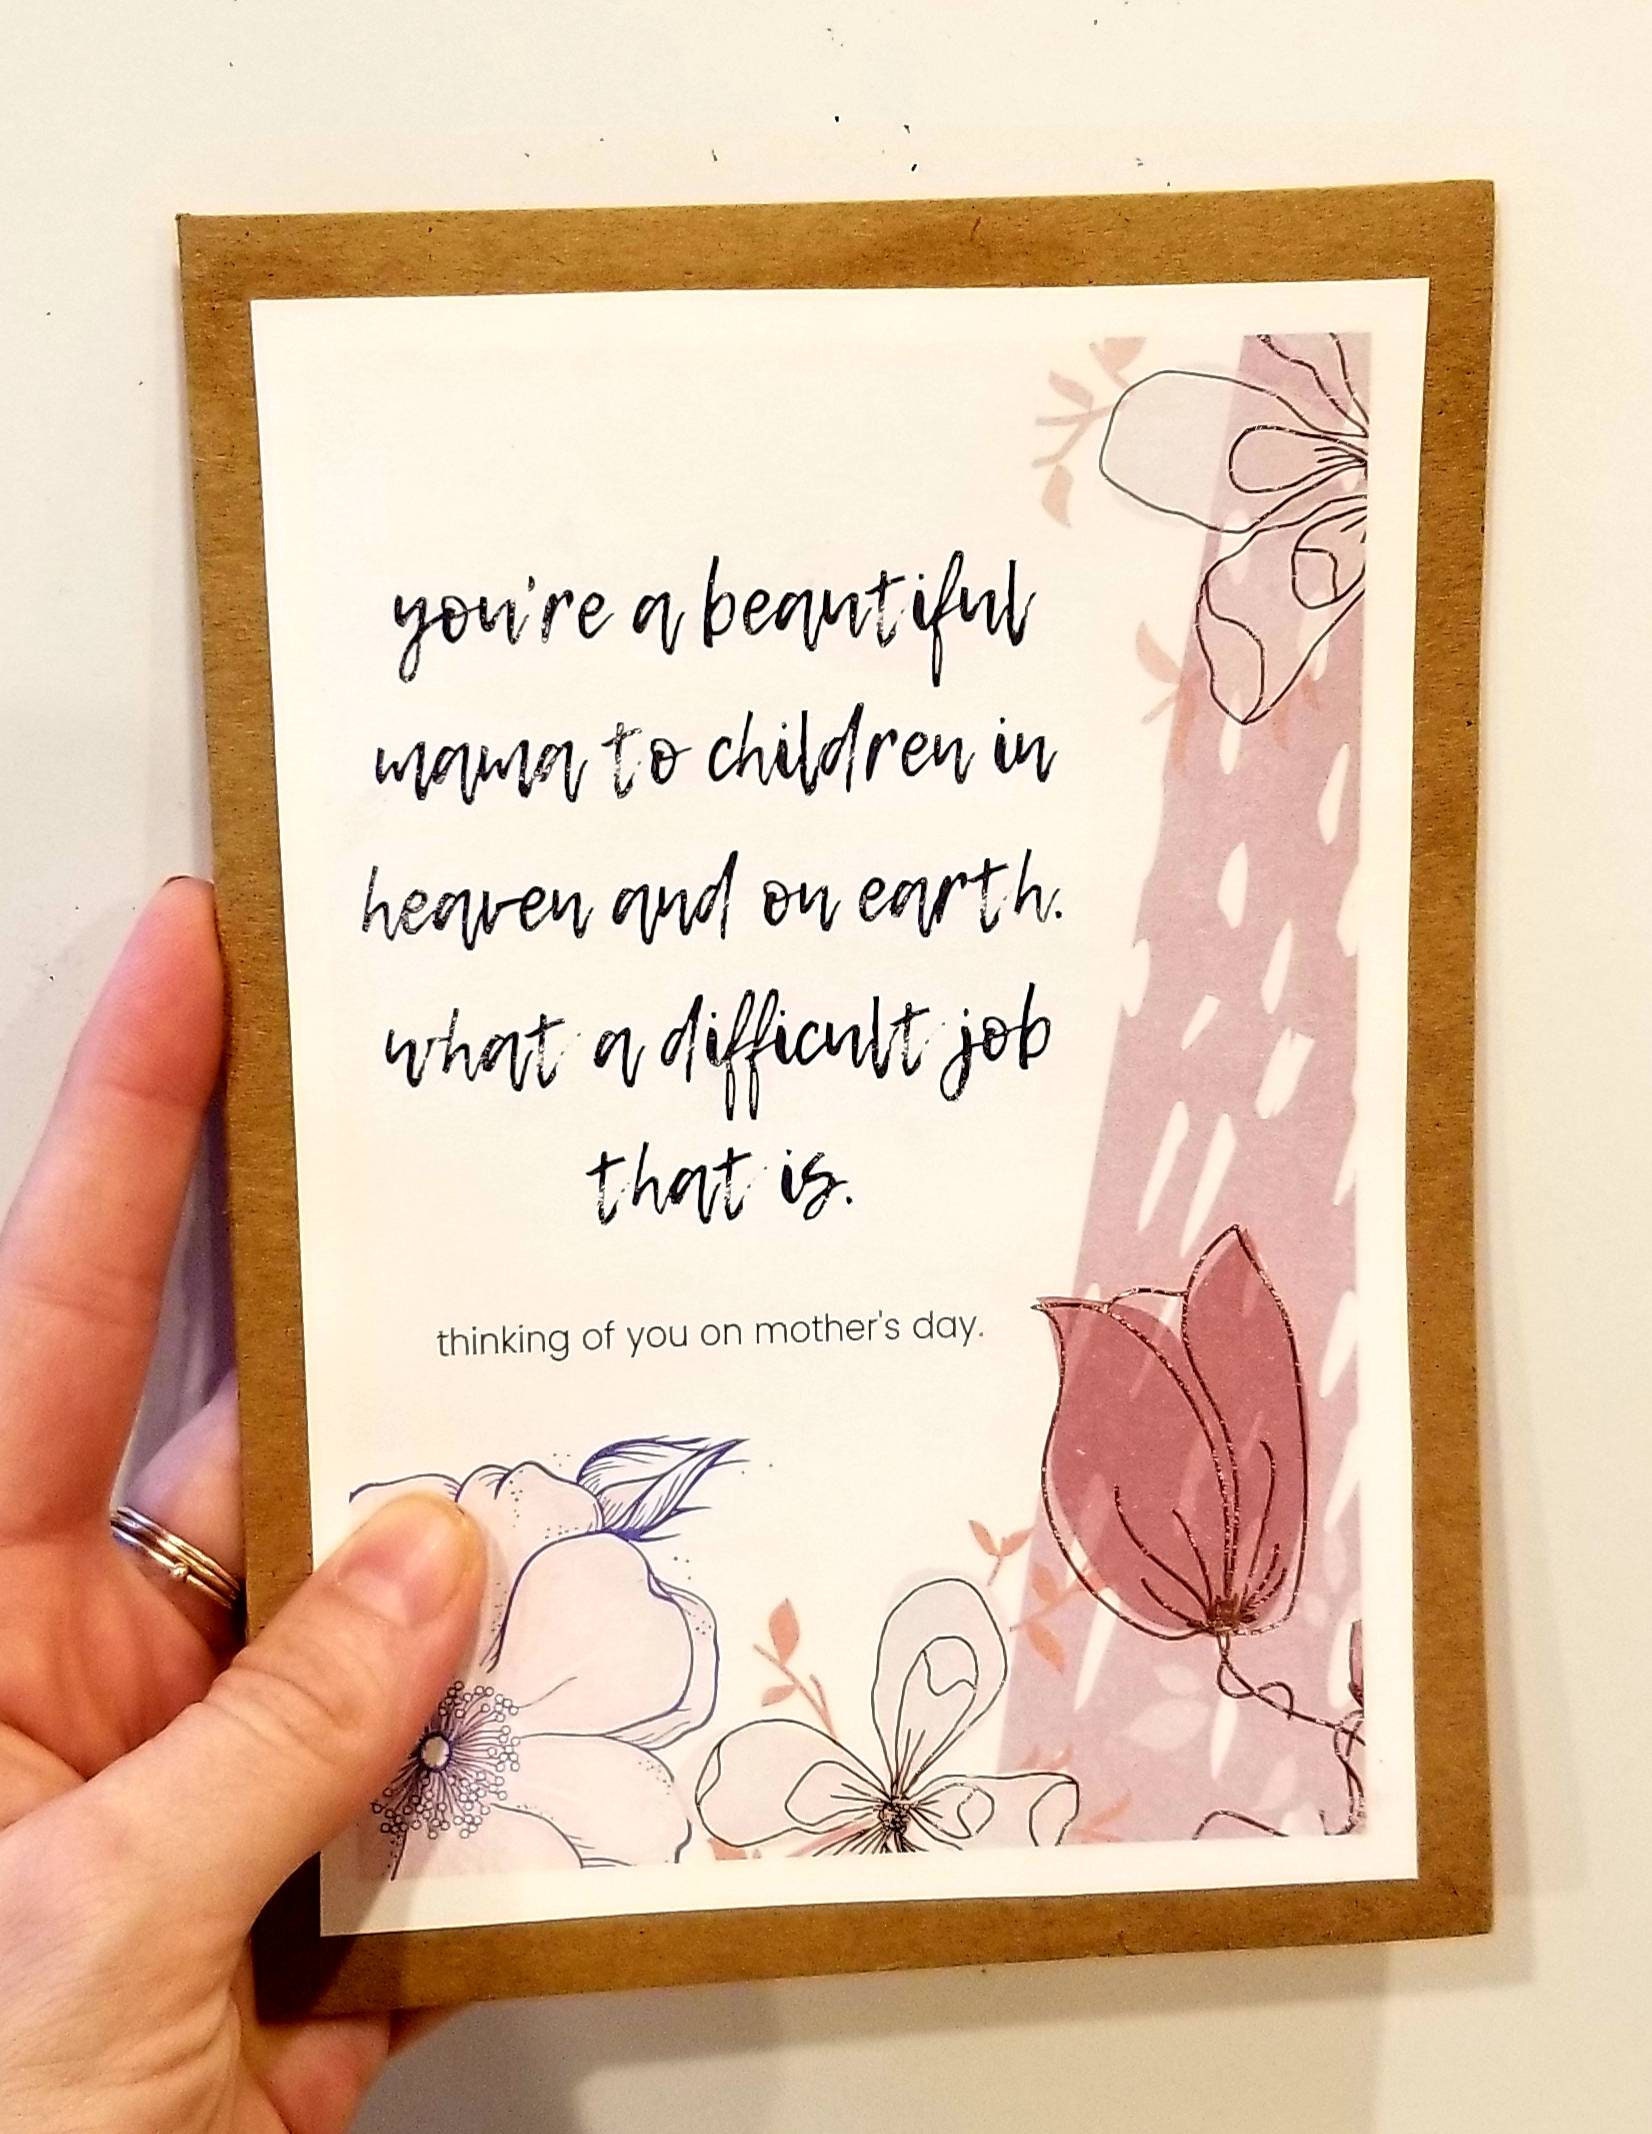 you're a beautiful
mama to children in
heaven and on earth.
what a difficult job
that is.
thinking of you on mother's day.